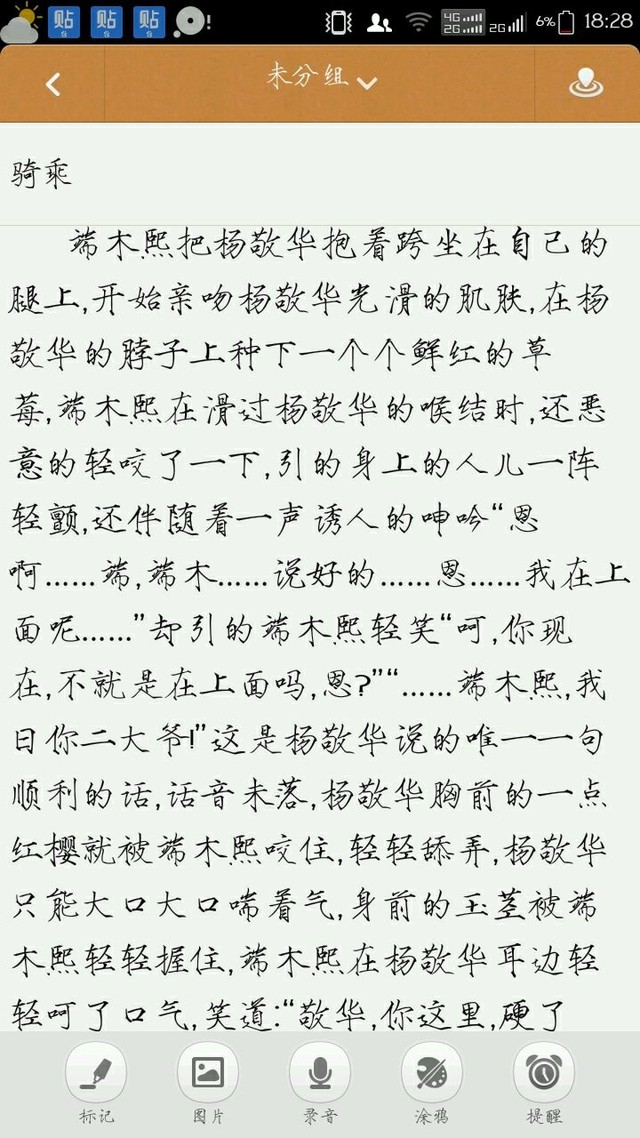 贴 贴 贴 ! 4G 2G 2G 6% 18:28
未分组
骑乘
端木熙把杨敬华抱着跨坐在自己的
腿上,开始亲吻杨敬华光滑的肌肤,在杨
敬华的脖子上种下一个个鲜红的草
莓,端木熙在滑过杨敬华的喉结时,还恶
意的轻咬了一下,引的身上的人儿一阵
轻颤,还伴随着一声诱人的呻吟“恩
啊……端,端木……说好的……恩……我在上
面呢……”却引的端木熙轻笑“呵,你现
在,不就是在上面吗,恩?”“……端木熙,我
日你二大爷!”这是杨敬华说的唯一一句
顺利的话,话音未落,杨敬华胸前的一点
红樱就被端木熙咬住,轻轻舔弄,杨敬华
只能大口大口喘着气,身前的玉茎被端
木熙轻轻握住,端木熙在杨敬华耳边轻
轻呵了口气,笑道:“敬华,你这里,硬了
标记 图片 录音 涂鸦 提醒